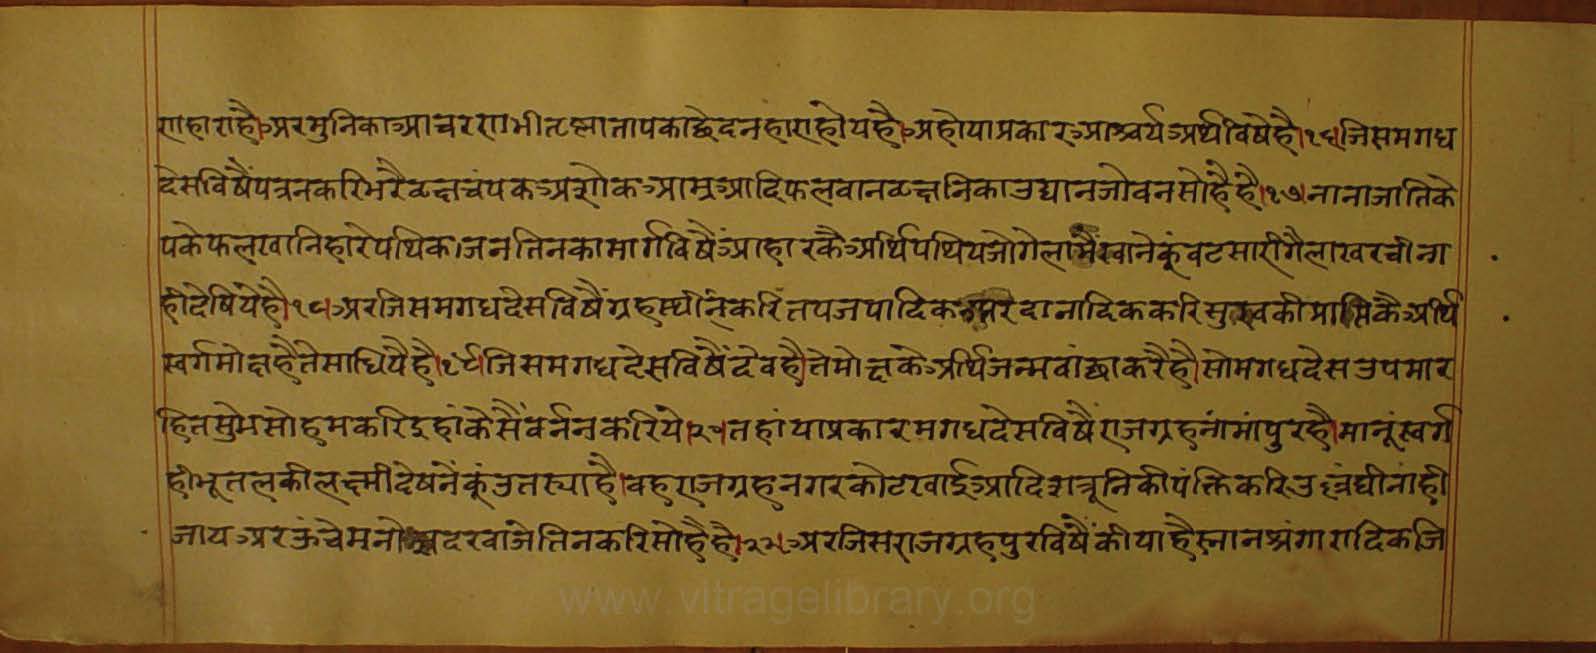 णहाराहै।अरमुनिकाआचरणभीतृष्णातापकाछेदनहाराहोयहै।अहोयाप्रकारआश्चर्यअर्थविषेहै।१६।जिसमगध
देसविषैंपवनकरिभरैवृक्षचंपकअशोकआम्रआदिफलवानवृक्षनिकाउद्यानजोवनसोहैहै।१७।नानाजातिके
पकेफलखानिहारेपथिकजनतिनकामार्गविषैंआहारकैअर्थिपथियजोगेलामैंखानेकूंवटसारीगैलाखरचीना
हीदेषियेहै।१८।अरजिसमगधदेसविषैंग्रहस्थीनंकरितपजपादिकअरदानादिककरिसुखकीप्राप्तिकैअर्थि
स्वर्गमोक्षहैतेसाधियैहै।१९।जिसमगधदेसविषैंदेवहैतेमोक्षकेअर्थिजन्मवांछाकरैहै।सोमगधदेसउपमार
हितसुमेसोहमकरिइहांकेसैंवर्ननकरिये।२०।तहांयाप्रकारमगधदेसविषैंराजग्रहनांमांपुरहै।मानूंस्वर्ग
हीभूतलकीलक्ष्मीदेषनैंकूंउतस्याहै।वहराजग्रहनगरकोटखाईआदिशत्रूनिकीपंक्तिकरिउलंघीनांही
जायअरऊंचेमनोज्ञदरवाजेतिनकरिसोहैहै।२१।अरजिसराजग्रहपुरविषैंकीयाहैस्नानश्रंगारादिकजि
www.vitragelibrary.org